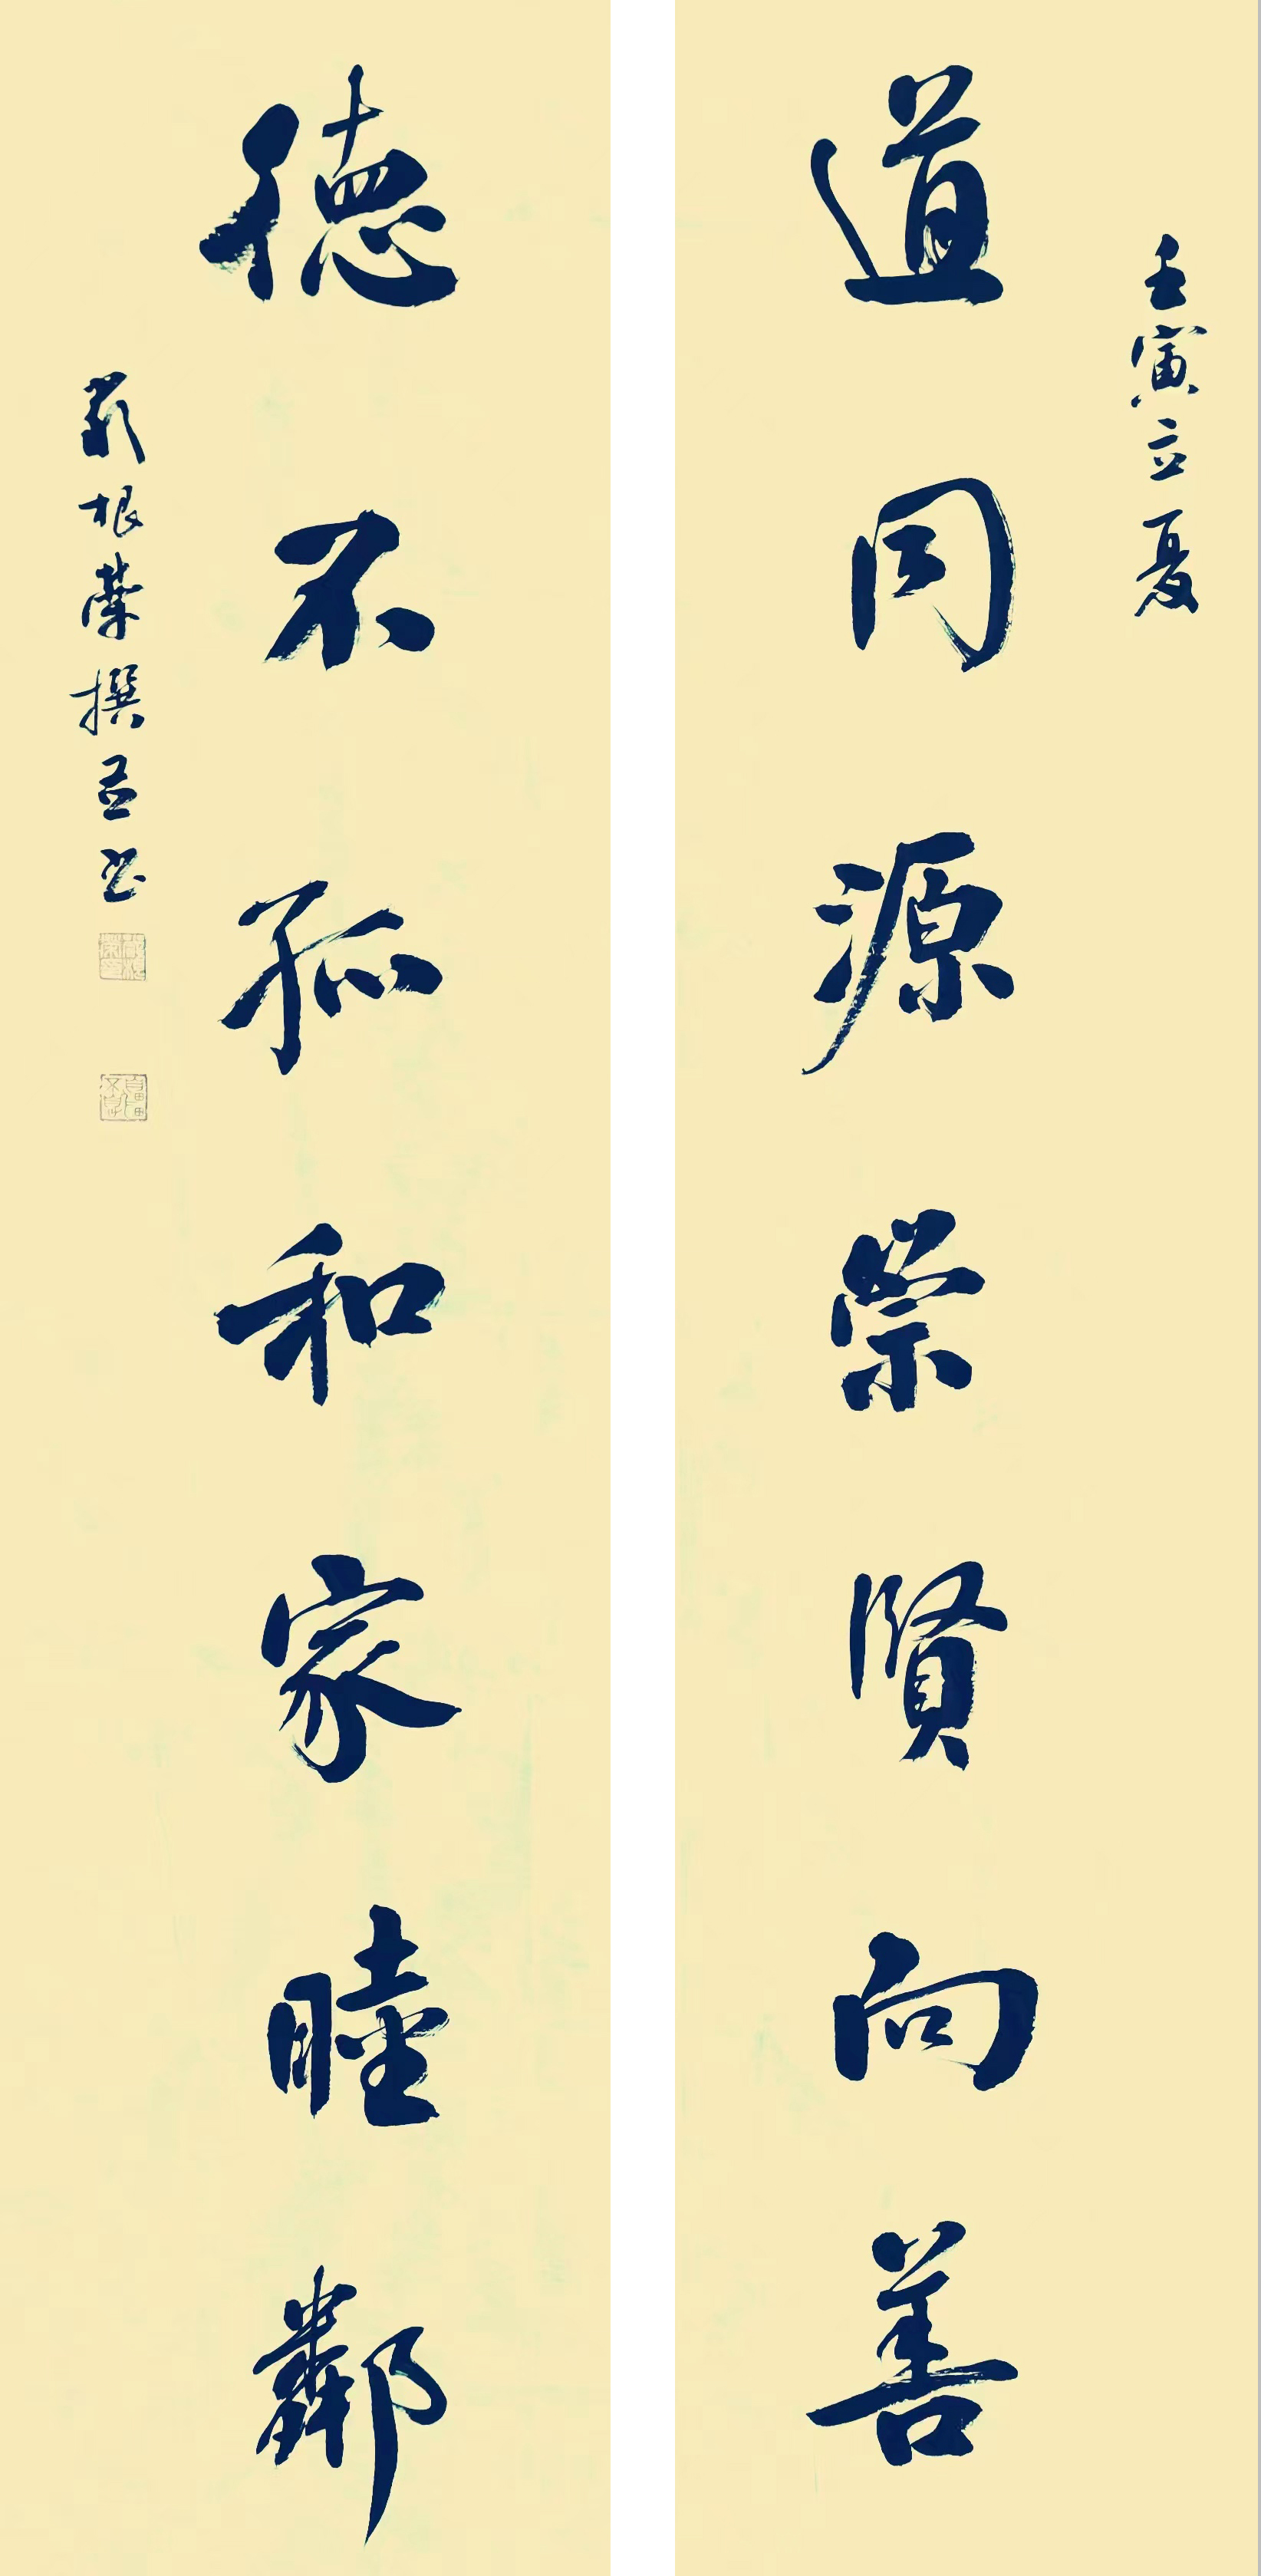 壬寅立夏
道同源崇賢向善
德不孤和家睦鄰
根榮撰並书